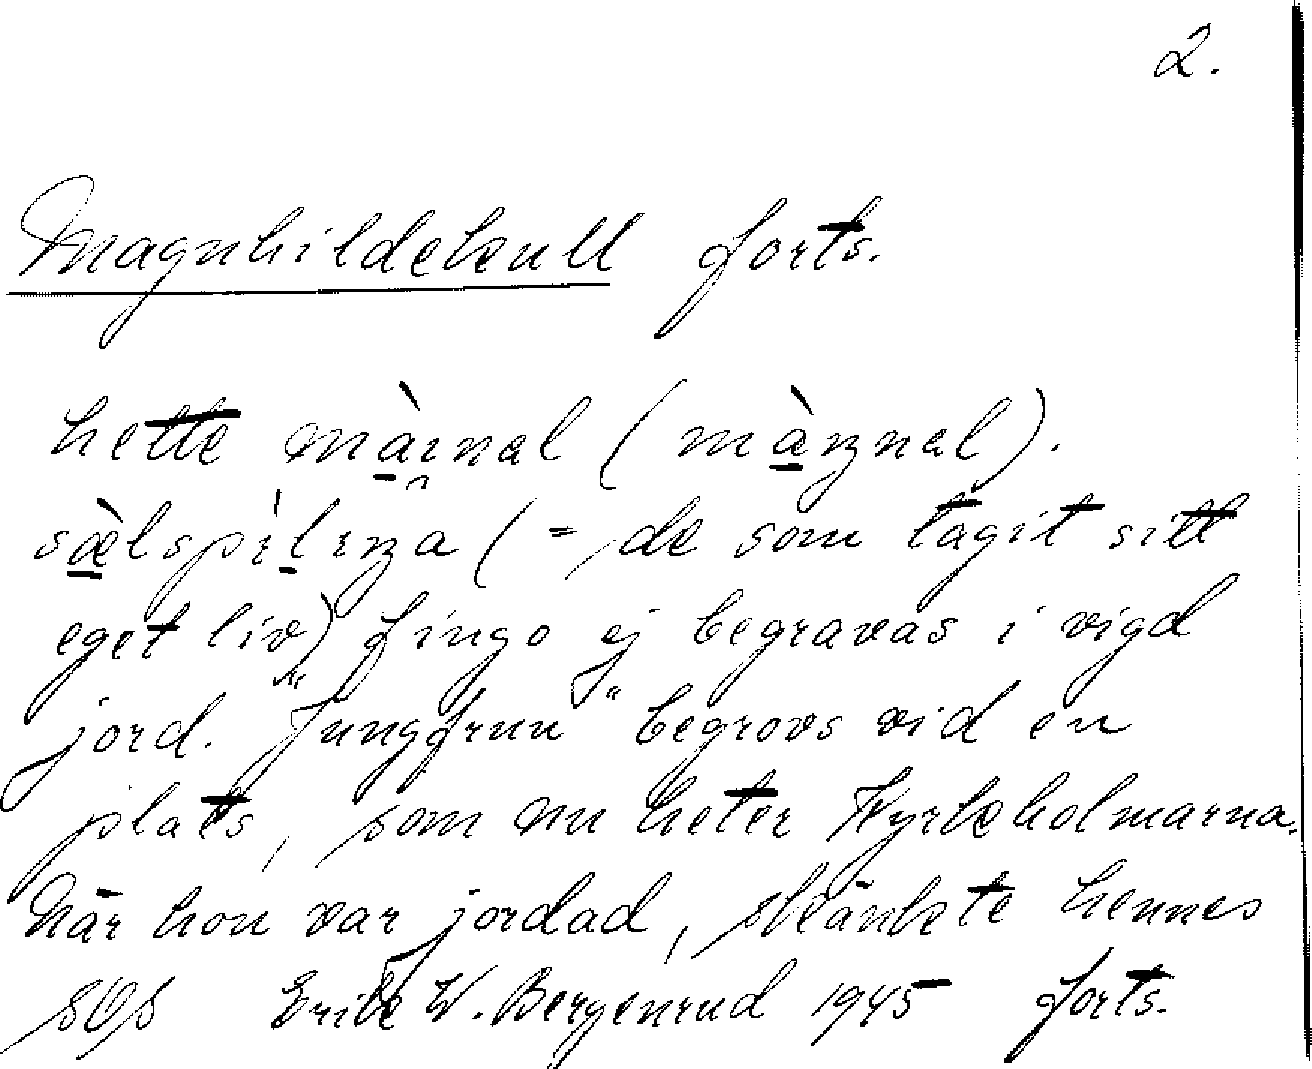 2.
Magnhildekull forts.
hette màrnal (màrnal).
sæ̀lspìlɩra (=, de som tagit sitt
eget liv) fingo ej begravas i vigd
jord. "Jungfrun" begrovs vid en
plats, som nu heter Kyrkholmarna.
När hon var jordad, skänkte hennes
SOS Erik W. Bergenrud 1945 forts.